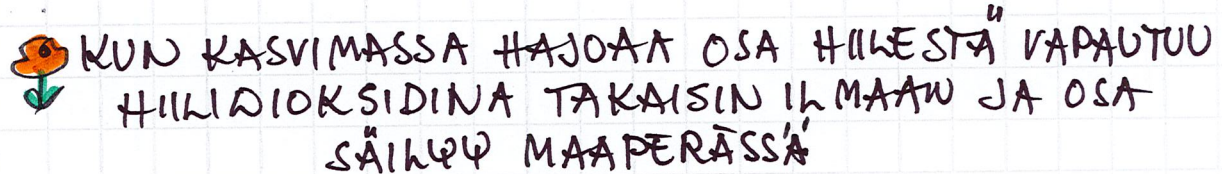 KUN KASVIMASSA HAJOAA OSA HIILESTÄ VAPAUTUU
HIILIDIOKSIDINA TAKAISIN ILMAAN JA OSA
SÄILYY MAAPERÄSSÄ